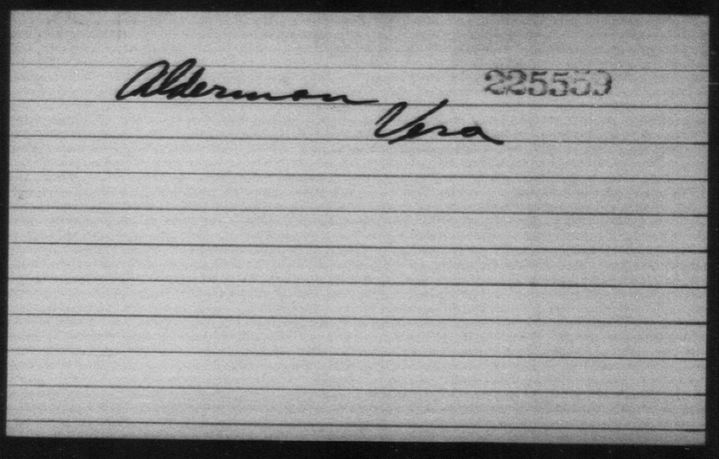 Alderman 225559
Vera